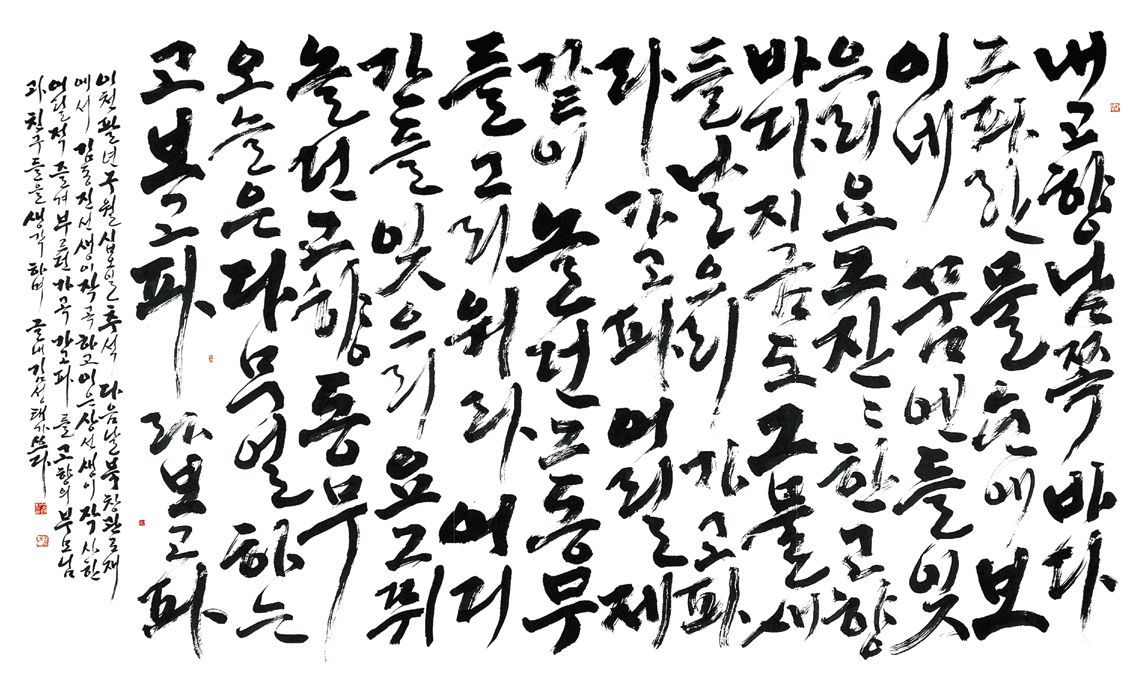 내 고향 남쪽 바다
그 파란 물 눈에 보
이네 꿈엔들 잊
으리요 그 잔잔한 고향
바다 지금도 그 물새
들 날으리 가고파
라 가고파 어릴 제
같이 놀던 그 동무
들 그리워라 어디
간들 잊으리요 그 뛰
놀던 고향 동무
오늘은 다 무얼 하는
고 보고파라 보고파
이천팔년 구월 십오일 추석 다음날
에서 김동진 선생이 작곡하고 이은상 선생이 작사한
어릴적 즐겨 부르던 가곡 가고파를 고향의 부모님
과 친구들을 생각하며 김성태가 쓰다